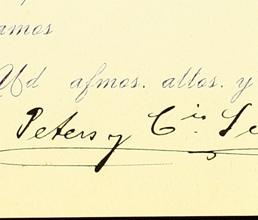 amos
Ud afmos. attos. y
Peters y Cia. Su